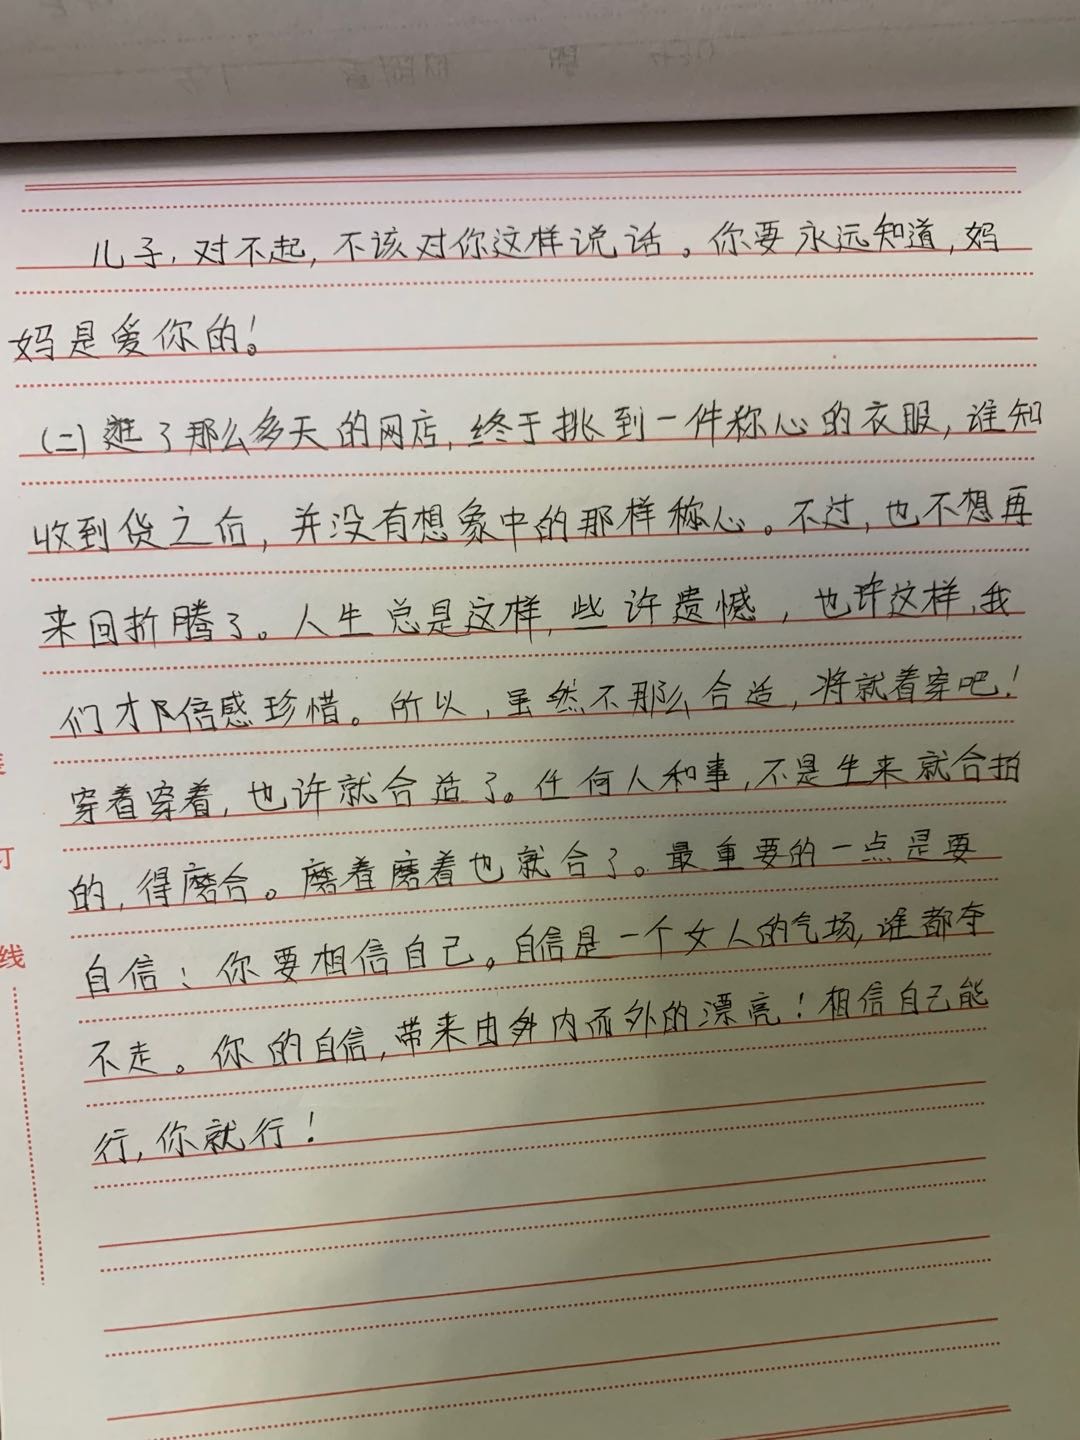 儿子，对不起，不该对你这样说话。你要永远知道，妈
妈是爱你的！
（二）逛了那么多天的网店，终于挑到一件称心的衣服，谁知
收到货之后，并没有想象中的那样称心。不过，也不想再
来回折腾了。人生总是这样，些许遗憾，也许这样，我
们才倍感珍惜。所以，虽然不那么合适，将就着穿吧！
穿着穿着，也许就合适了。任何人和事，不是生来就合拍
的，得磨合。磨着磨着也就合了。最重要的一点是要
自信：你要相信自己。自信是一个女人的气场，谁都夺
不走。你的自信，带来由内而外的漂亮！相信自己能
行，你就行！
订
线